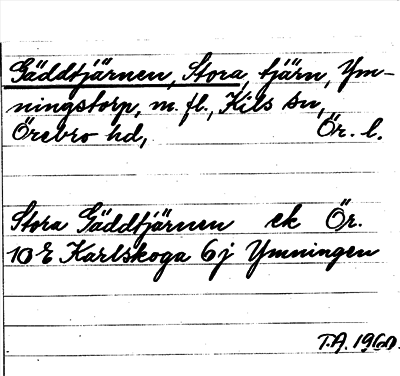 Gäddtjärnen, Stora, tjärn, Ym-
ningstorp, m. fl., Kils sn,
Örebro hd, Ör. l.
Stora Gäddtjärnen ek Ör.
10 E Karlskoga 6j Ymningen
T.A. 1960.